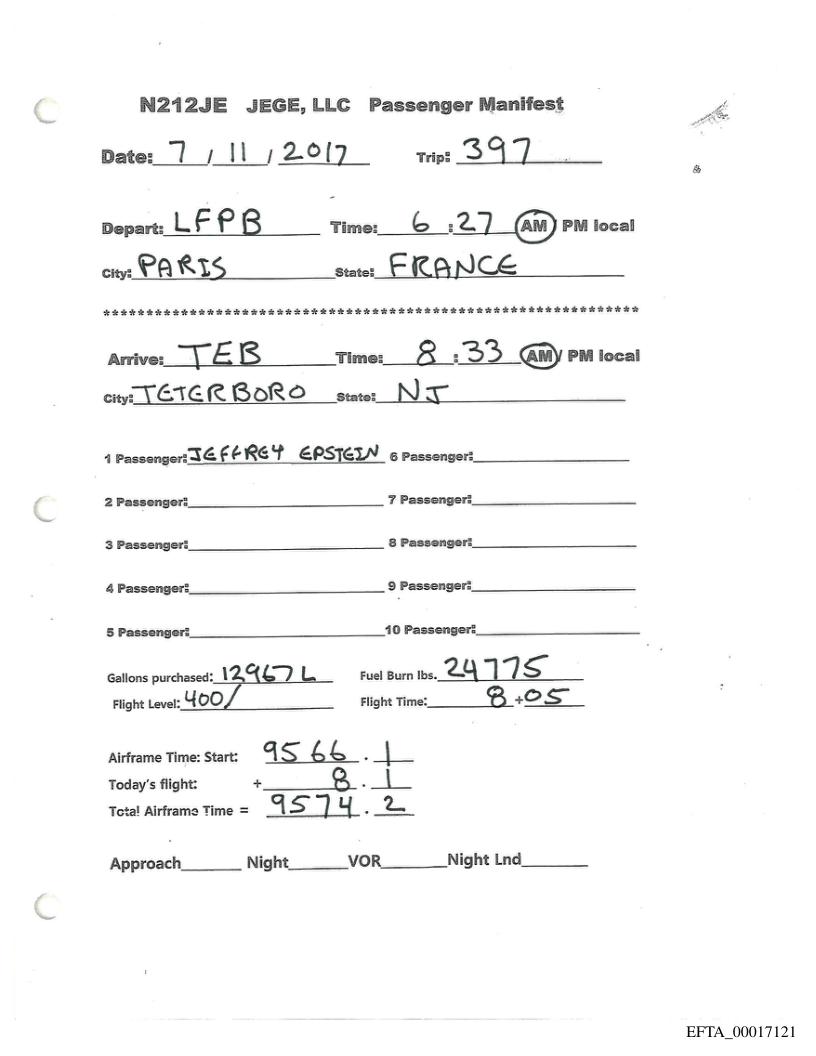 N212JE JEGE, LLC Passenger Manifest
Date: 7 / 11 / 2017 Trip: 397
Depart: LFPB Time: 6 : 27 AM PM local
City: PARIS State: FRANCE
****************************************************************
Arrive: TEB Time: 8 : 33 AM/ PM local
City: TETERBORO State: NJ
1 Passenger: JEFFREY EPSTEIN 6 Passenger:
2 Passenger: 7 Passenger:
3 Passenger: 8 Passenger:
4 Passenger: 9 Passenger:
5 Passenger: 10 Passenger:
Gallons purchased: 12967 L Fuel Burn lbs. 24775
Flight Level: 400/ Flight Time: 8 + 05
Airframe Time: Start: 9566 . 1
Today's flight: + 8 . 1
Total Airframe Time = 9574 . 2
Approach Night VOR Night Lnd
EFTA_00017121